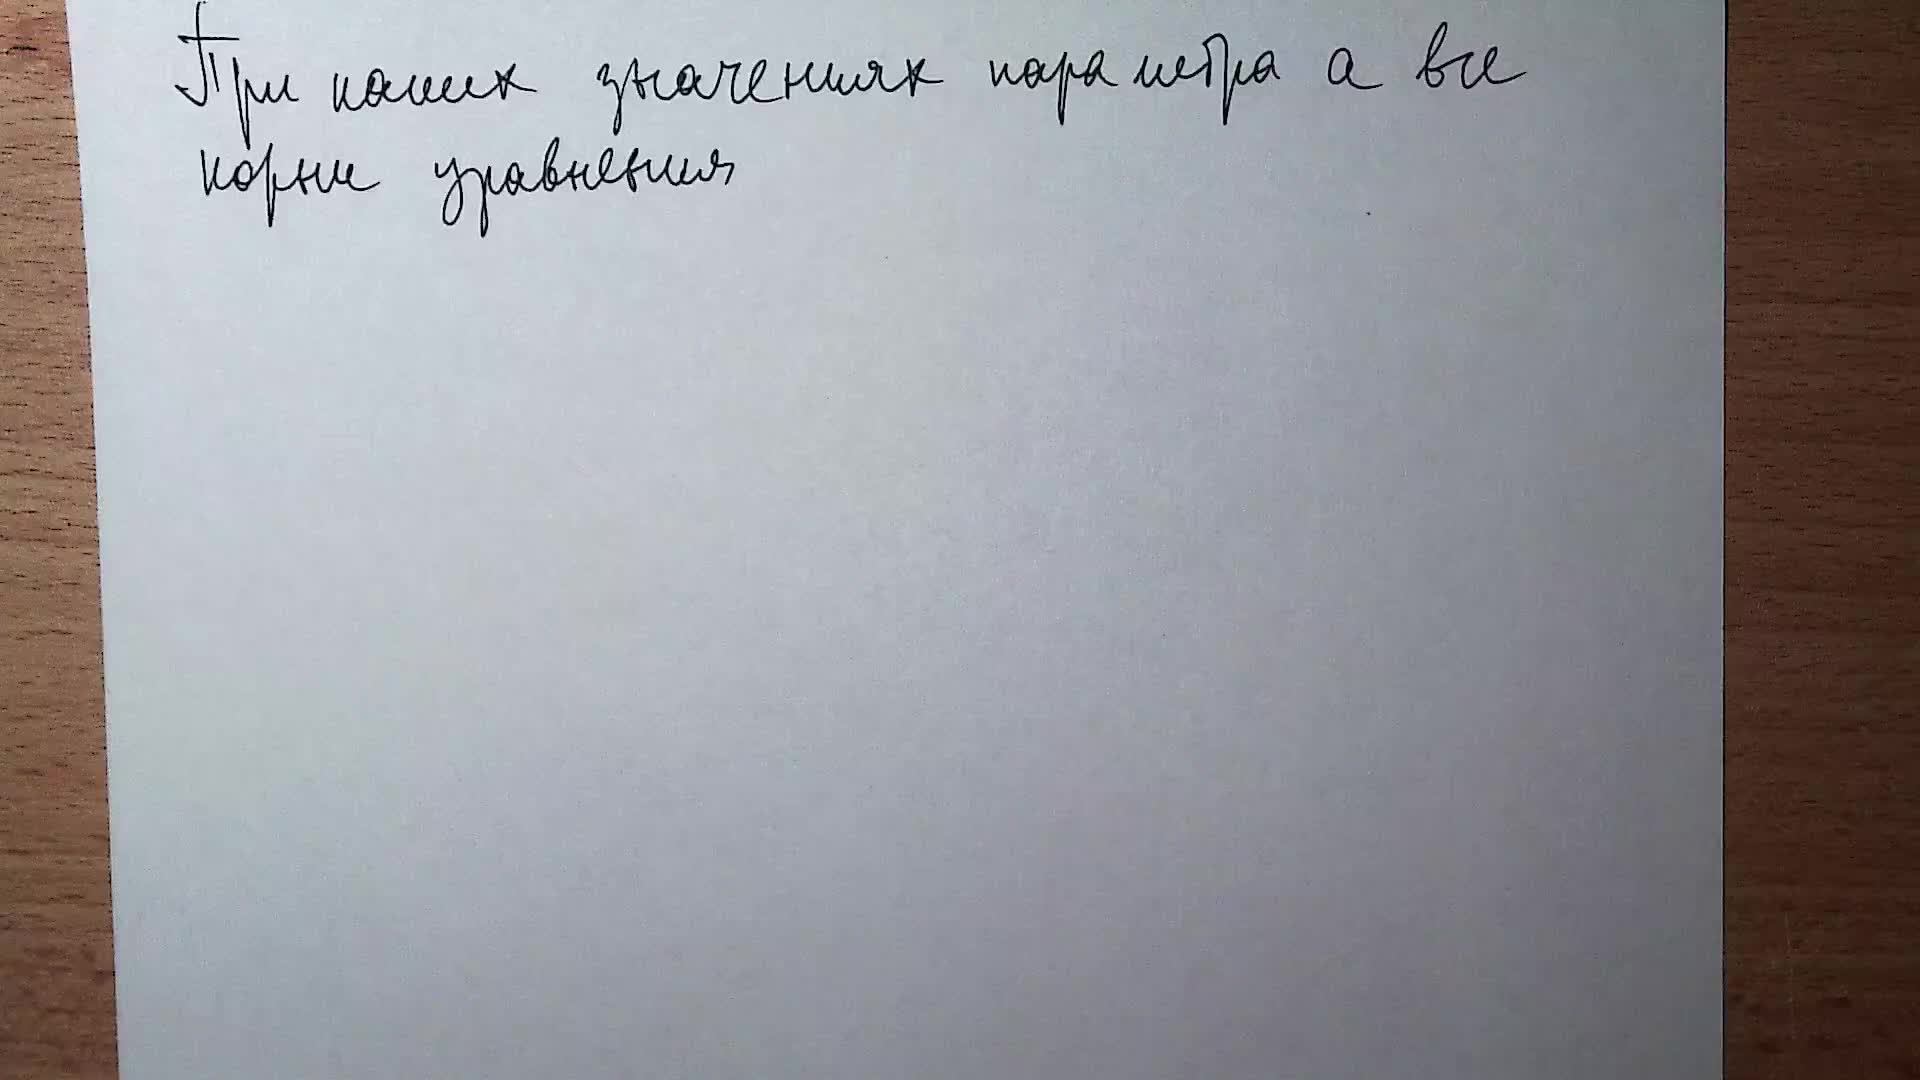 При каких значениях параметра а все
корни уравнения